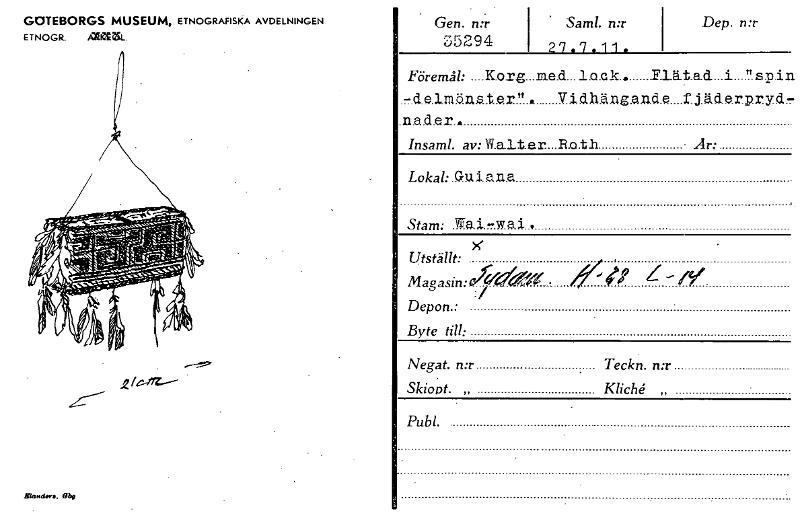 GÖTEBORGS MUSEUM, ETNOGRAFISKA AVDELNINGEN
ETNOGR.
21 cm
Elanders, Gbg
Gen. n:r Saml. n:r Dep. n:r
35294 27.7.11.
Föremål: Korg med lock. Flätad i "spin
-delmönster". Vidhängande fjäderpryd-
nader.
Insaml. av: Walter Roth År:
Lokal: Guiana
Stam: Wai-wai.
Utställt: x
Magasin: Sydam. H-28 L-14
Depon.:
Byte till:
Negat. n:r Teckn. n:r
Skiopt. „ Kliché „
Publ.